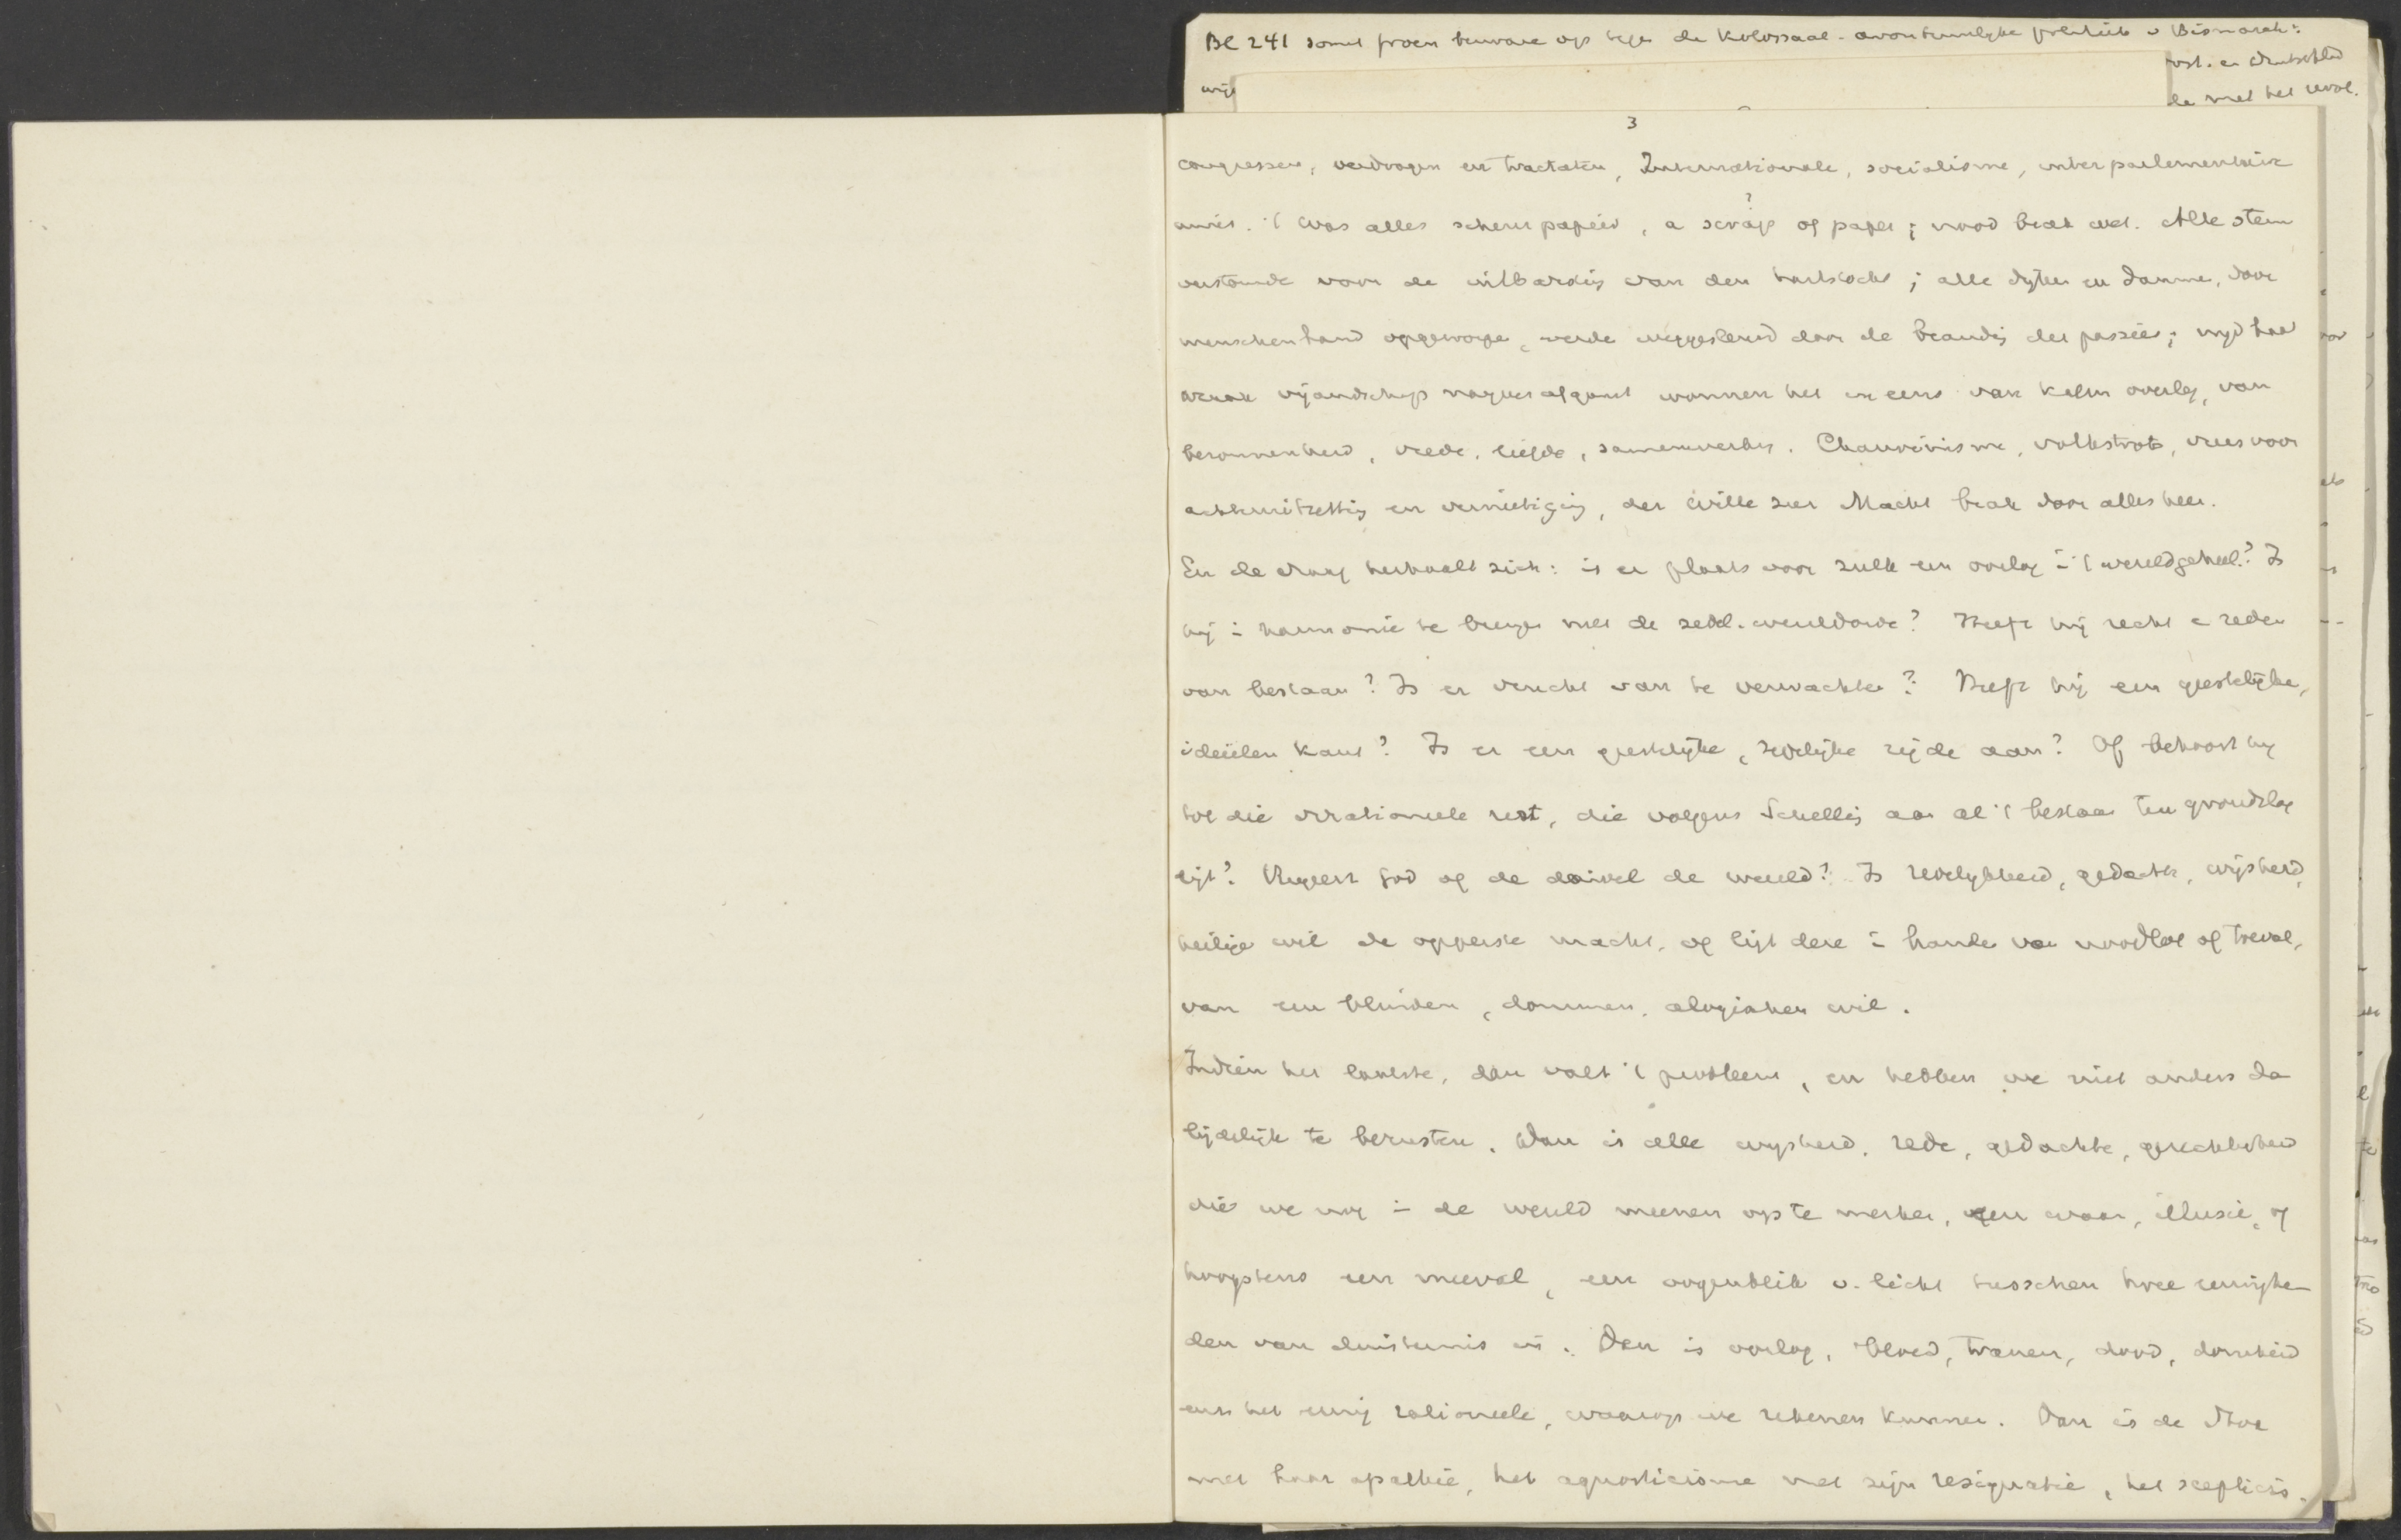 BC 241 somt proen bewaren op tege de Kolossaal-avontuurlyke politiek v Bismarck:
ost. en Duitschld
de met het revol.
3
congressen, verdragen en tractaten, Internationale, socialisme, interparlementaire
unies. 't was alles scheurpapier, a scrap of paper; nood brak wet. Alle stem
verstomde voor de uitbarsting van den hartstocht; alle dyken en dammen, door
menschenhand opgeworpe, werde weggesleurd door de branding der passies; nyd haat
wraak vijandschap naijver afgunst wonnen het ineens van kalm overleg, van
bezonnenheid, vrede, liefde, samenwerking. Chauvinisme, volkstrots, vrees voor
achteruitzetting en vernietiging, der Wille zur Macht brak door alles heen.
En de vraag herhaalt zich: is er plaats voor zulk een oorlog i 't wereldgeheel? Is
hij i harmonie te brengen met de zedel. wereldorde? Heeft hij recht e reden
van bestaan? Is er vrucht van te verwachten? Heeft hij een geestelijke,
ideëelen kant? Is er een geestelijke, zedelijke zijde aan? Of behoort hij
tot die irrationeele rest, die volgens Schelling aan al 't bestaan ten grondslag
ligt? Regeert God of de duivel de wereld? Is redelykheid, gedachte, wijsheid,
heilige wil de opperste macht, of ligt deze i handen van noodlot of toeval,
van een blinden, dommen, alogischen wil.
Indien het laatste, dan valt 't probleem, en hebben we niet anders da
lijdelijk te berusten. Dan is alle wysheid, rede, gedachte, gerechtigheid
die we nog i de wereld meenen op te merken, een waan, illusie, of
hoogstens een toeval, een oogenblik v. licht tusschen twee eeuwighe-
den van duisternis in. Dan is oorlog, bloed, tranen, dood, domheid
enz het eenig rationeele, waarop we rekenen kunnen. Dan is de Stoa
met haar apathie, het agnosticisme met zijn resignatie, het scepticis-